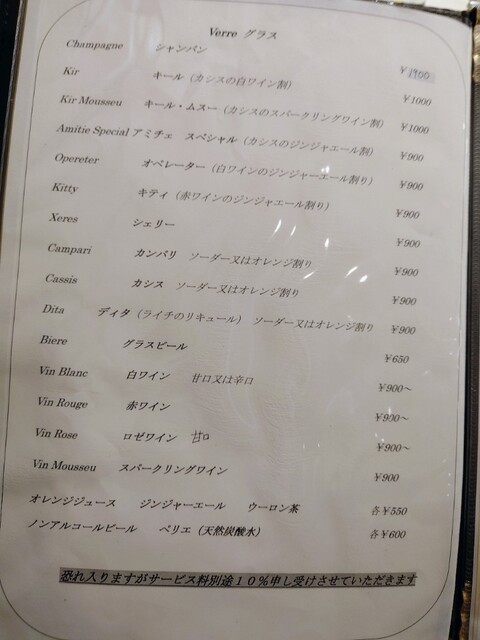 Verre グラス
Champagne シャンパン ￥1900
Kir キール（カシスの白ワイン割） ￥1000
Kir Mousseu キール・ムスー（カシスのスパークリングワイン割） ￥1000
Amitie Special アミチェ スペシャル（カシスのジンジャエール割） ￥900
Opereter オペレーター（白ワインのジンジャーエール割り） ￥900
Kitty キティ（赤ワインのジンジャエール割り） ￥900
Xeres シェリー ￥900
Campari カンパリ ソーダー又はオレンジ割り ￥900
Cassis カシス ソーダー又はオレンジ割り ￥900
Dita ディタ（ライチのリキュール） ソーダー又はオレンジ割り ￥900
Biere グラスビール ￥650
Vin Blanc 白ワイン 甘口又は辛口 ￥900～
Vin Rouge 赤ワイン ￥900～
Vin Rose ロゼワイン 甘口 ￥900～
Vin Mousseu スパークリングワイン ￥900
オレンジジュース ジンジャーエール ウーロン茶 各￥550
ノンアルコールビール ペリエ（天然炭酸水） 各￥600
恐れ入りますがサービス料別途１０％申し受けさせていただきます